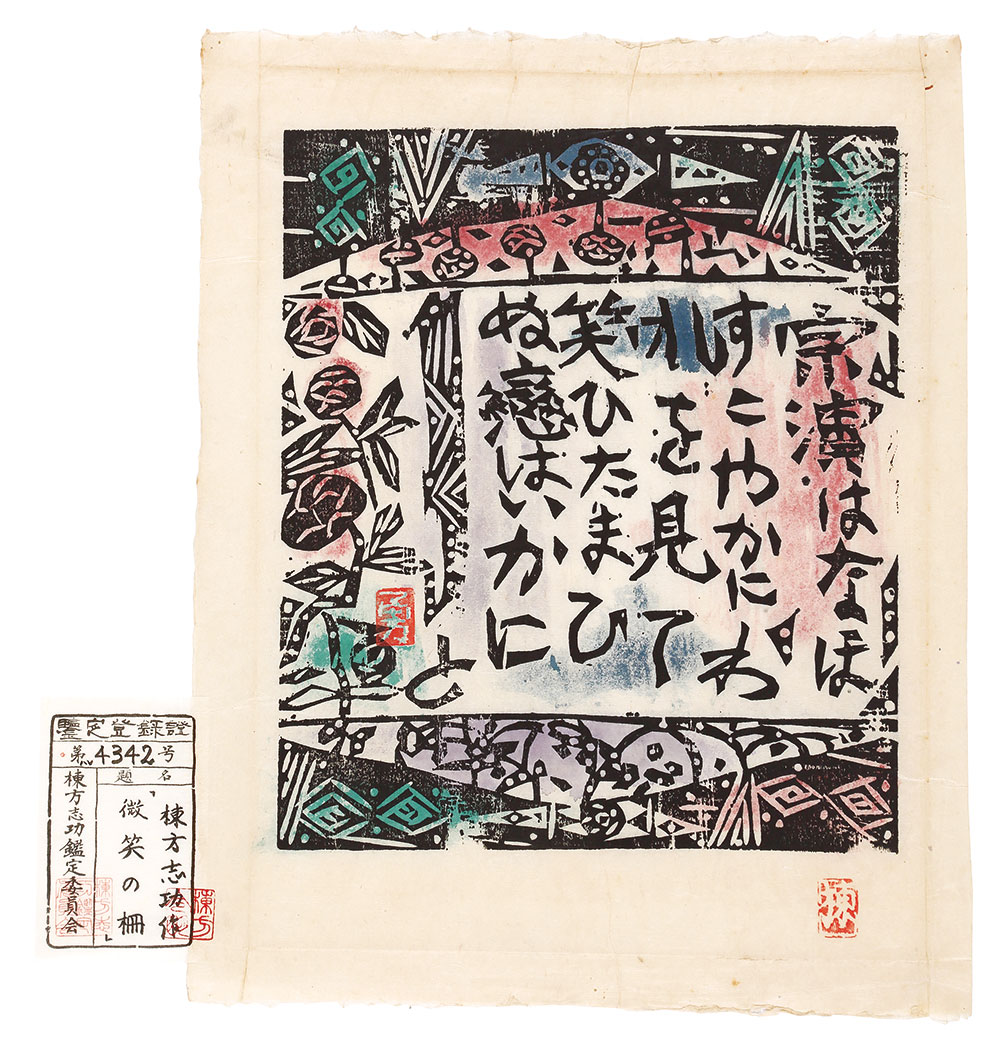 宗演はなほ
すこやかにわ
れを見て
笑ひたまひ
ぬ戀はいかに
と
棟
鑒定登録證
第4342号
題名
棟方志功作
「微笑の柵」
棟方志功鑑定委員会